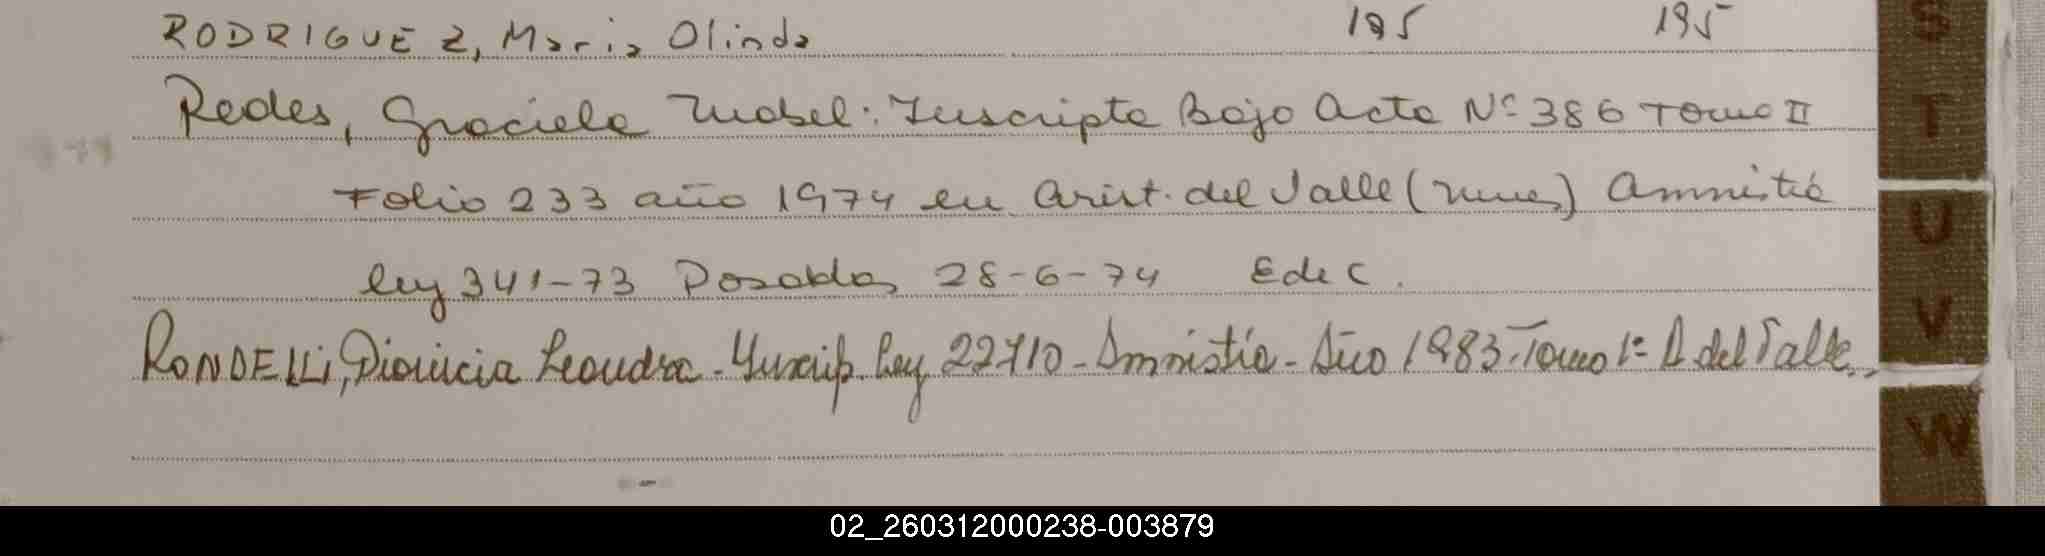 RODRIGUEZ, Maria Olinda 195 195
Redes, Graciela Mabel: Inscripta Bajo Acta Nº 386 Tomo II
Folio 233 año 1974 en Arist. del Valle (Mnes) Amnistía
ley 341-73 Posadas 28-6-74 E de C.
RONDELLi, Dionicia Leandra - Inscrip. Ley 22710 - Amnistía - Año 1983. Tomo 1º A del Valle.
S
T
U
V
W
02_260312000238-003879